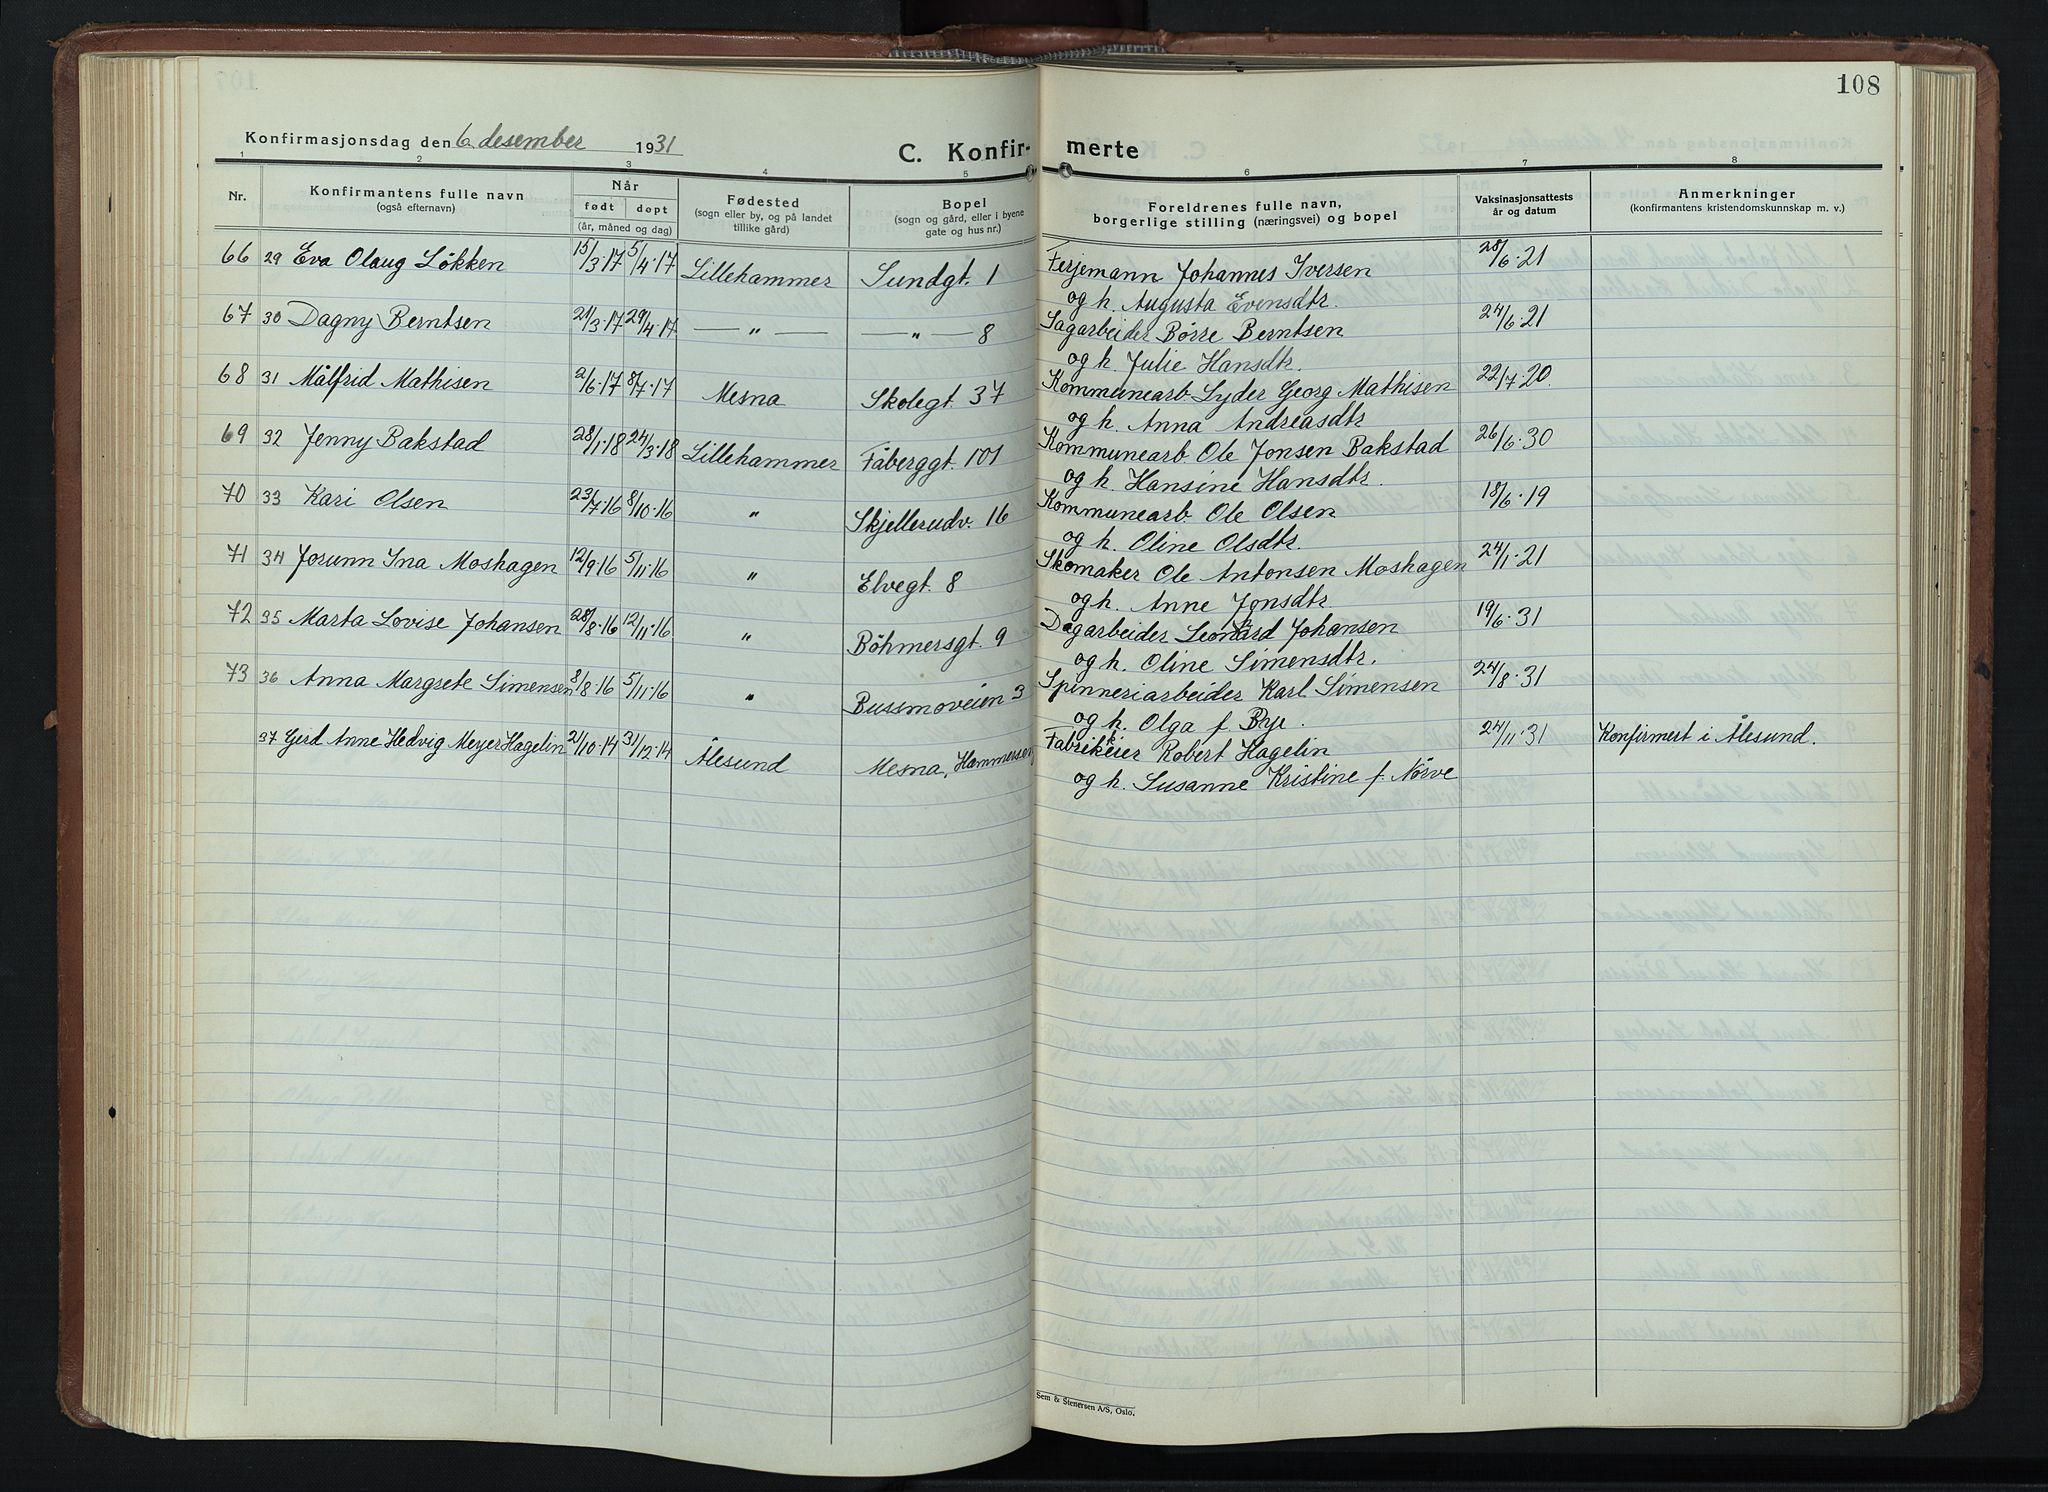 108
Konfirmasjonsdag den 6. desember 1931
C. Konfir- merte
1 2 3 4 5 6 7 8
Nr.
Konfirmantens fulle navn
(også efternavn)
Når
født døpt
(år, måned og dag)
Fødested
(sogn eller by, og på landet
tillike gård)
Bopel
(sogn og gård, eller i byene
gate og hus nr.)
Foreldrenes fulle navn,
borgerlige stilling (næringsvei) og bopel
Vaksinasjonsattests
år og datum
Anmerkninger
(konfirmantens kristendomskunnskap m. v.)
66 29 Eva Olaug Løkken 15/3·17 5/4·17 Lillehammer Sundgt. 1 Ferjemann Johannes Iversen 28/6·21
og h. Augusta Evensdtr.
67 30 Dagny Berntsen 21/3·17 29/4·17 — " — — " — 8 Sagarbeider Børre Berntsen 24/6·21
og h. Julie Hansdtr.
68 31 Målfrid Mathisen 2/6·17 8/7·17 Mesna Skolegt. 37 Kommunearb. Lyder Georg Mathisen 22/7·20
og h. Anna Andreasdtr
69 32 Jenny Bakstad 28/1·18 24/3·18 Lillehammer Fåberggt. 101 Kommunearb. Ole Jonsen Bakstad 26/6·30
og h. Hansine Hansdtr.
70 33 Kari Olsen 23/7·16 8/10·16 " Skjellerudv. 16 Kommunearb. Ole Olsen 18/6·19
og h. Oline Olsdtr.
71 34 Jorunn Ina Moshagen 12/9·16 5/11·16 " Elvegt. 8 Skomaker Ole Antonsen Moshagen 24/1·21
og h. Anne Jonsdtr.
72 35 Marta Lovise Johansen 28/8·16 12/11·16 " Bøhmersgt. 9 Dagarbeider Leonard Johansen 19/6·31
og h. Oline Simensdtr.
73 36 Anna Margrete Simensen 8/8·16 5/11·16 " Bussmoveien 3 Spinneriarbeider Karl Simensen 24/8·31
og h. Olga f. Bryr.
37 Gerd Anne Hedvig Meyer Hagelin 21/10·14 31/12·14 Ålesund Mesna, Hammerseng Fabrikeier Robert Hagelin 24/11·31 Konfirmert i Ålesund.
og h. Susanne Kristine f. Nørve
Sem & Stenersen A/S, Oslo.